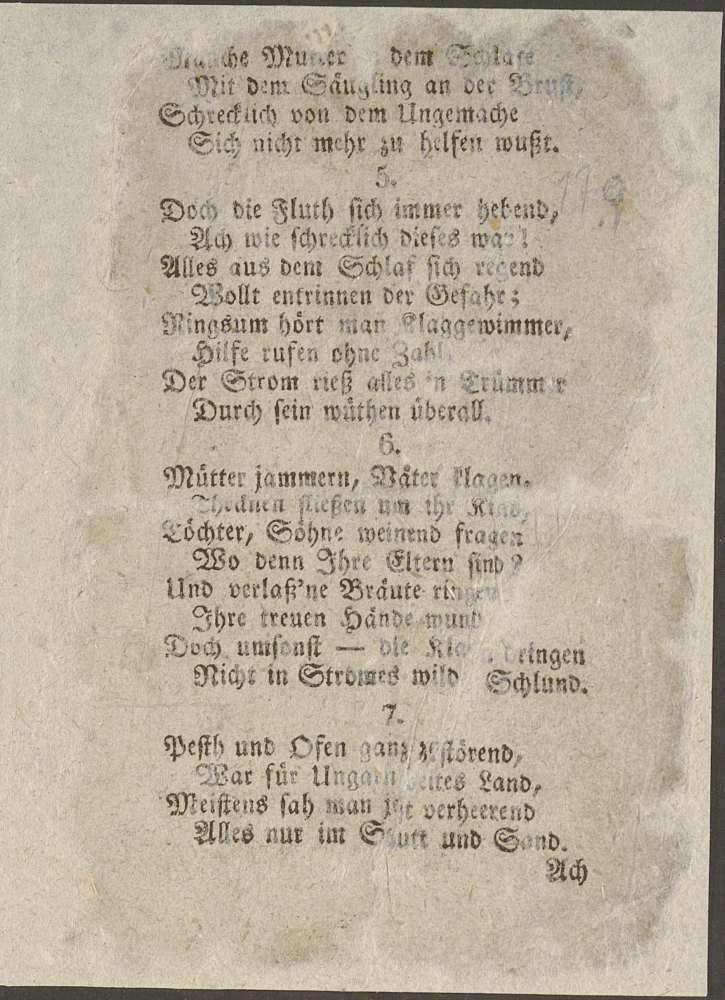 Manche Mutter dem Schlafe
Mit dem Säugling an der Brust,
Schrecklich von dem Ungemache
Sich nicht mehr zu helfen wußt.
5.
Doch die Fluth sich immer hebend,
Ach wie schrecklich dieses war!
Alles aus dem Schlaf sich regend
Wollt entrinnen der Gefahr;
Ringsum hört man Klaggewimmer,
Hilfe rufen ohne Zahl,
Der Strom rieß alles in Trümmer
Durch sein wüthen überall.
6.
Mütter jammern, Väter klagen.
Thränen fließen um ihr Kind,
Töchter, Söhne weinend fragen
Wo denn Ihre Eltern sind?
Und verlaß'ne Bräute ringen
Ihre treuen Hände wund
Doch umsonst — die Klagen dringen
Nicht in Stromes wild Schlund.
7.
Pesth und Ofen ganz zerstörend,
War für Ungarn Land,
Meistens sah man jtzt verheerend
Alles nur im Schutt und Sand.
Ach